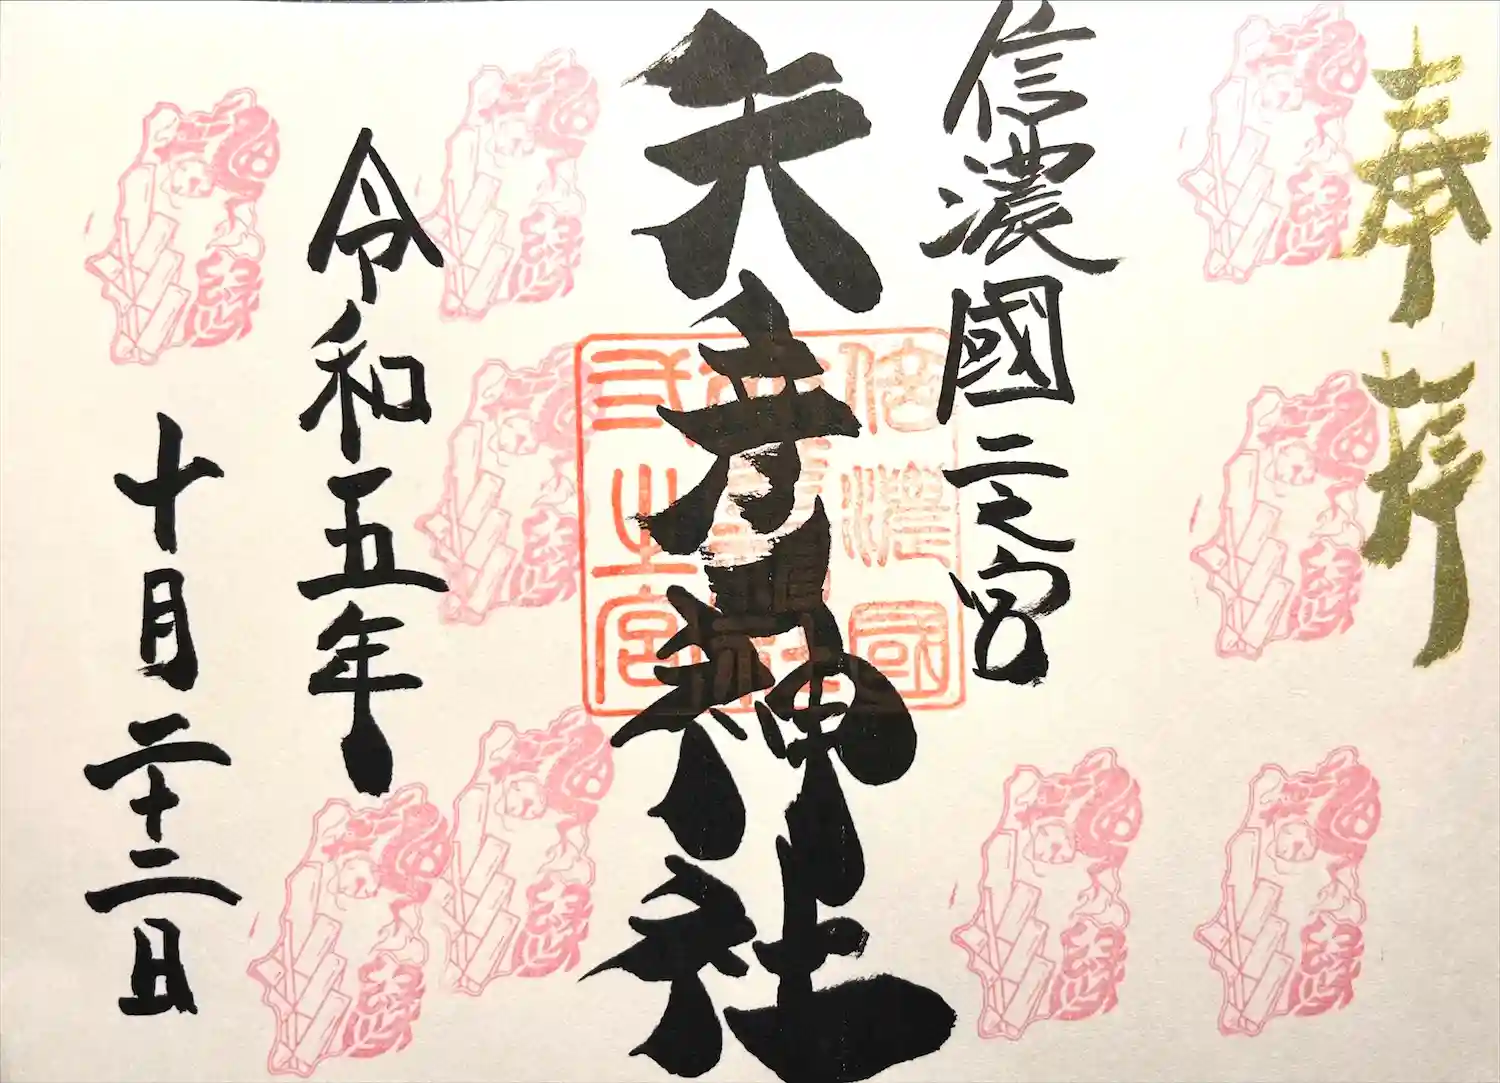 奉拝
信濃國二之宮
矢彦神社
信濃國
令和五年
十月二十二日